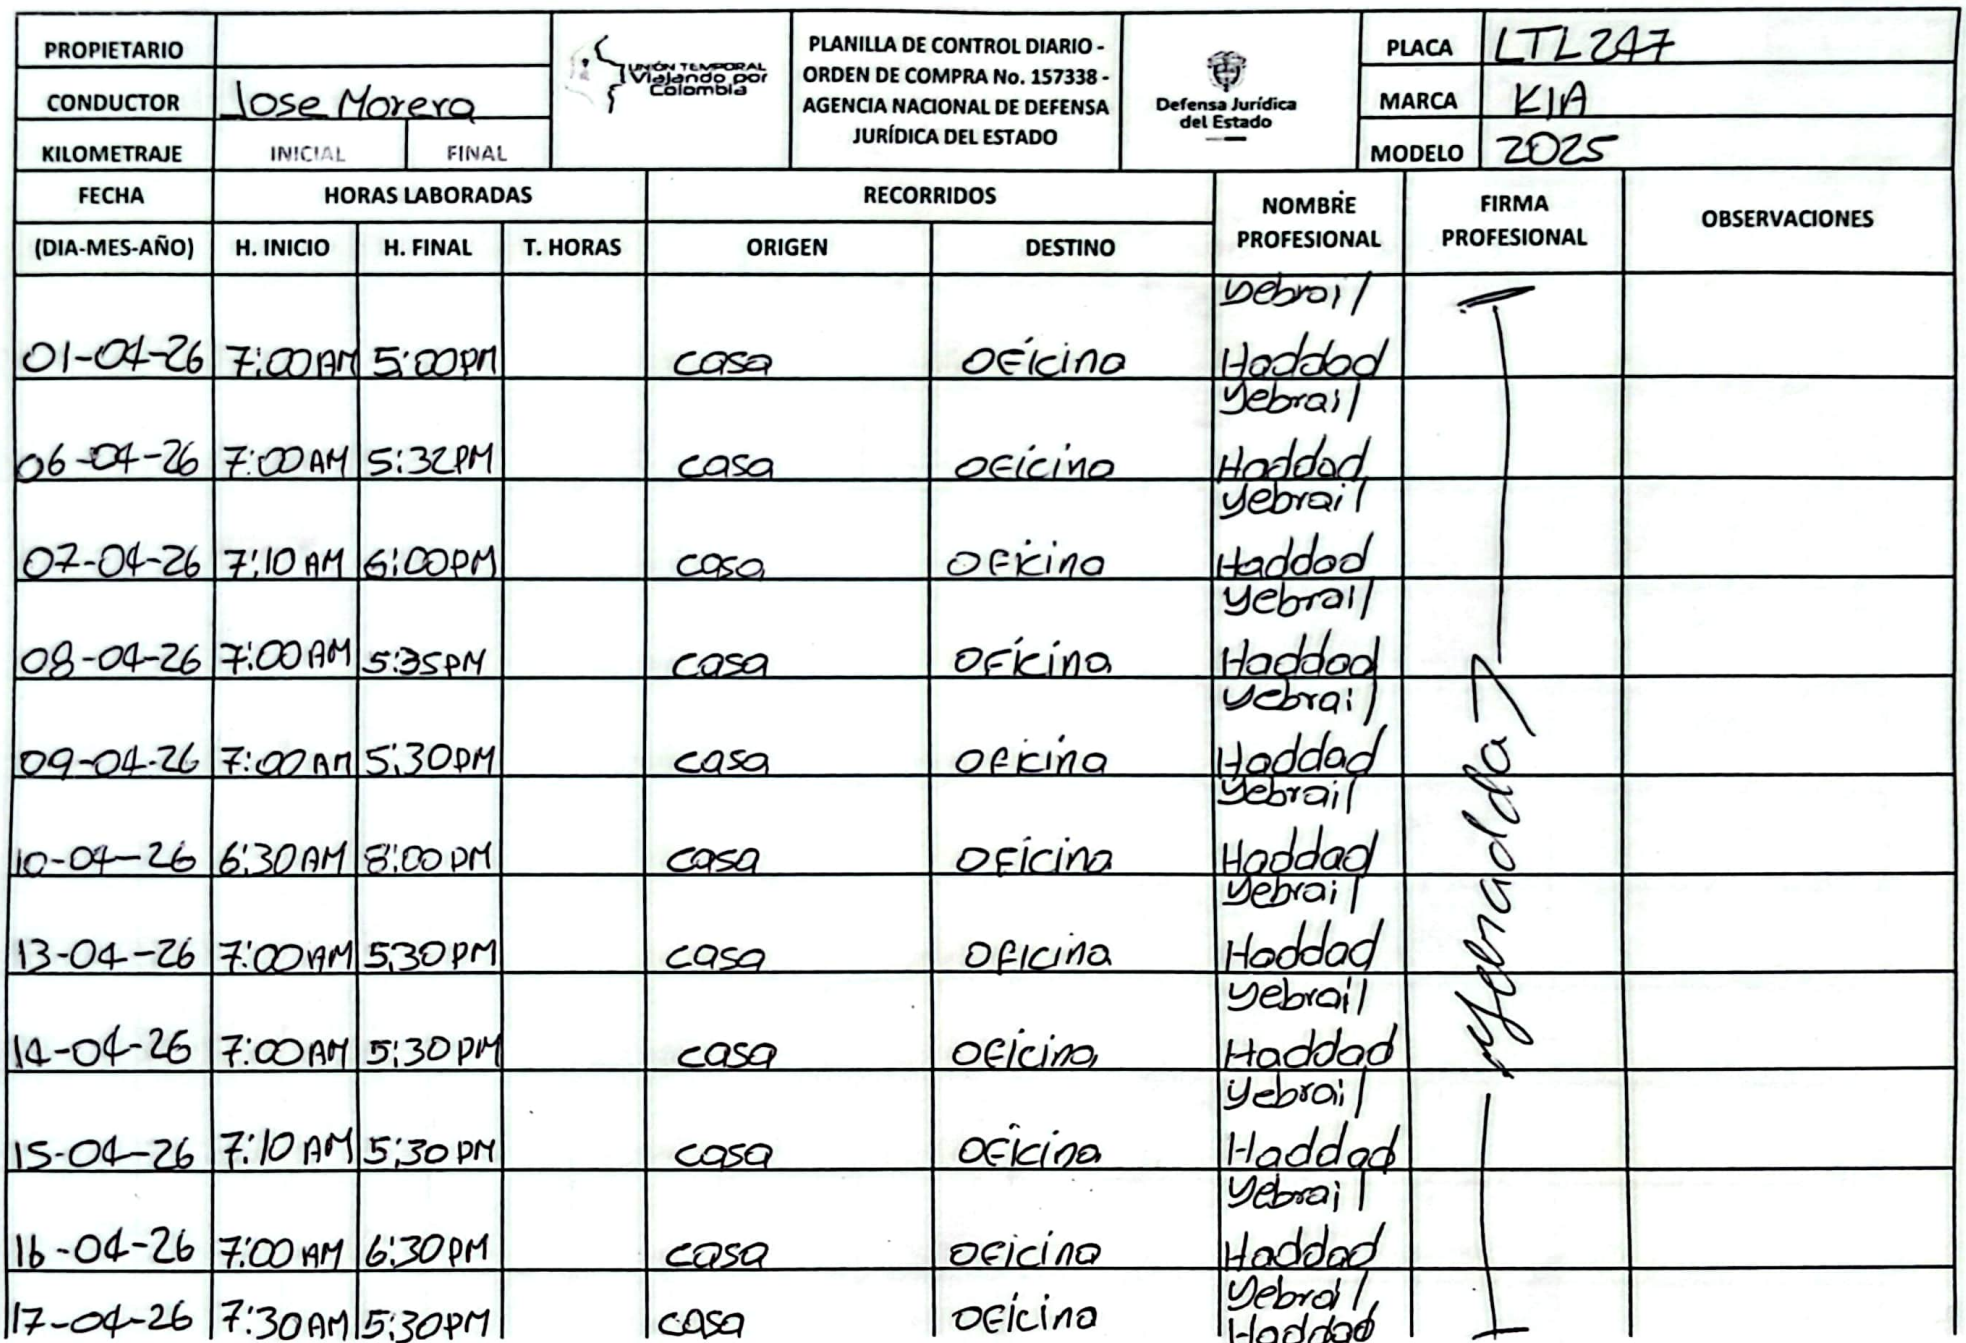 PROPIETARIO
UNIÓN TEMPORAL
Viajando por
Colombia
PLANILLA DE CONTROL DIARIO -
ORDEN DE COMPRA No. 157338 -
AGENCIA NACIONAL DE DEFENSA
JURÍDICA DEL ESTADO
Defensa Jurídica
del Estado
PLACA LTL247
CONDUCTOR Jose Morera
MARCA KIA
KILOMETRAJE INICIAL FINAL
MODELO 2025
FECHA HORAS LABORADAS RECORRIDOS NOMBRE PROFESIONAL FIRMA PROFESIONAL OBSERVACIONES
(DIA-MES-AÑO) H. INICIO H. FINAL T. HORAS ORIGEN DESTINO
01-04-26 7:00AM 5:00PM casa oficina Yebrail Haddad
06-04-26 7:00AM 5:32PM casa oficina Yebrail Haddad
07-04-26 7:10AM 6:00PM casa oficina Yebrail Haddad
08-04-26 7:00AM 5:35PM casa oficina Yebrail Haddad
09-04-26 7:00AM 5:30PM casa oficina Yebrail Haddad
10-04-26 6:30AM 8:00PM casa oficina Yebrail Haddad
13-04-26 7:00AM 5:30PM casa oficina Yebrail Haddad
14-04-26 7:00AM 5:30PM casa oficina Yebrail Haddad
15-04-26 7:10AM 5:30PM casa oficina Yebrail Haddad
16-04-26 7:00AM 6:30PM casa oficina Yebrail Haddad
17-04-26 7:30AM 5:30PM casa oficina Yebrail Haddad